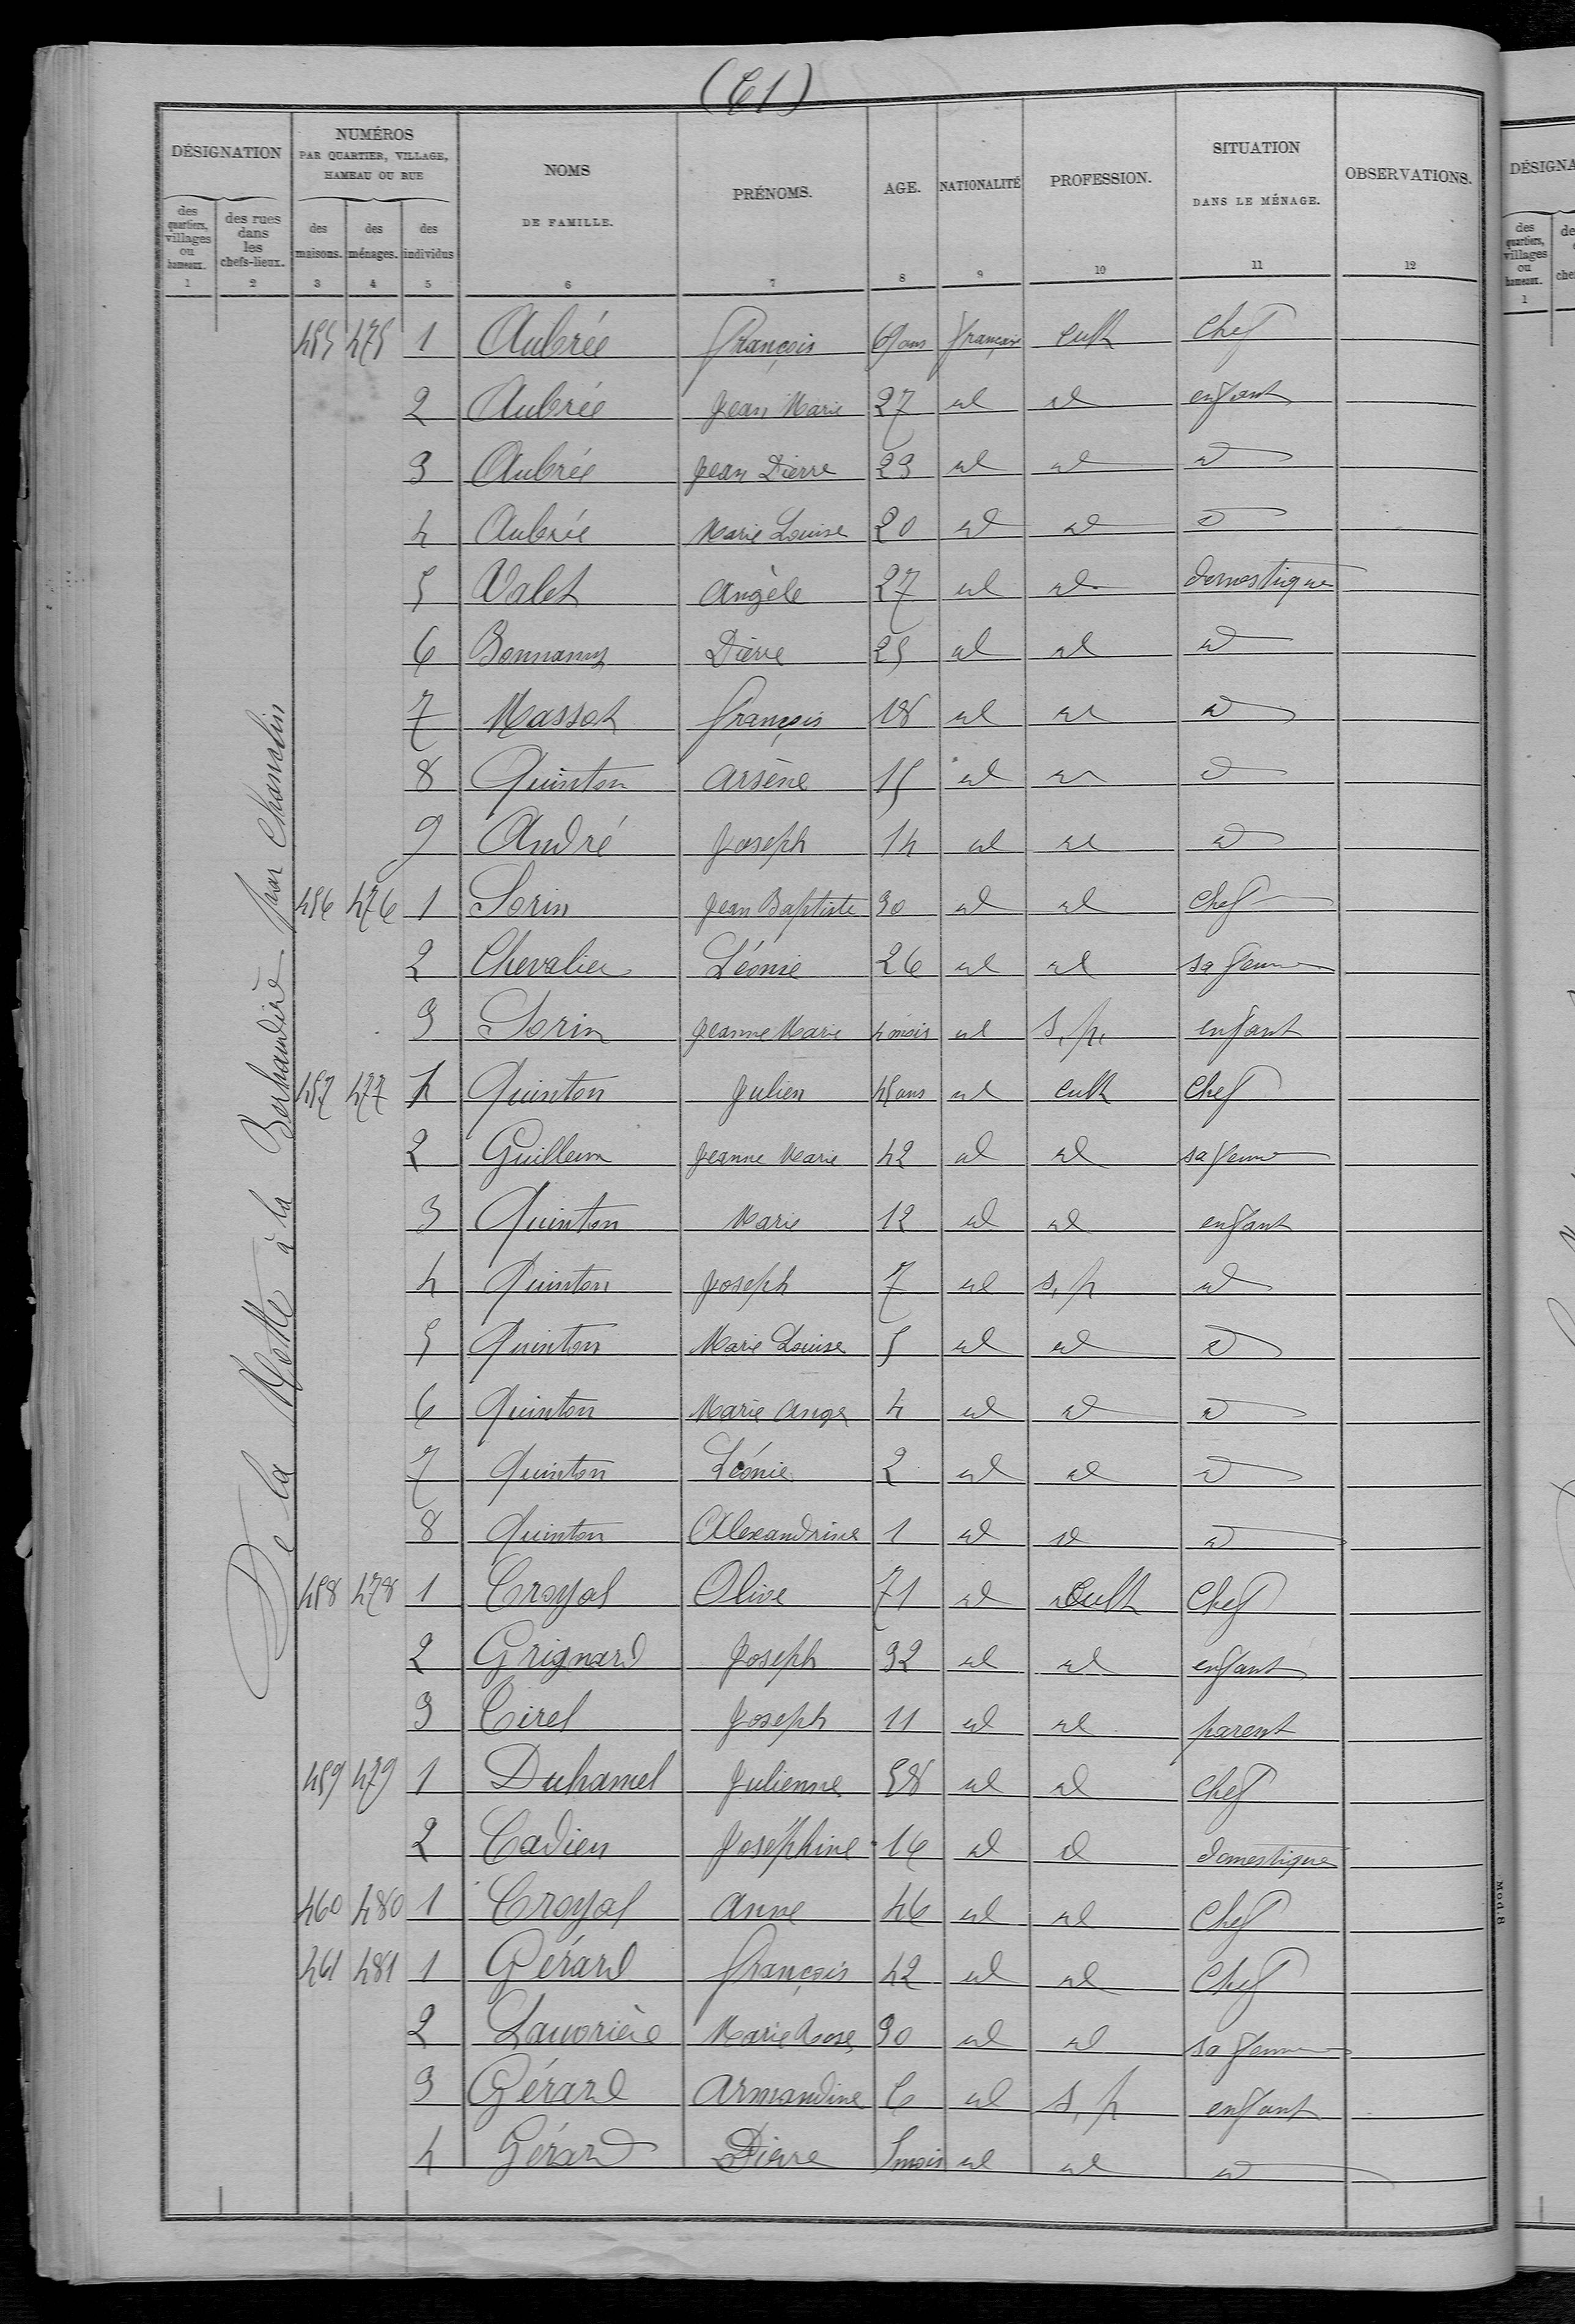 (61)
DÉSIGNATION
NUMÉROS PAR QUARTIER, VILLAGE, HAMEAU OU RUE
NOMS DE FAMILLE.
PRÉNOMS.
AGE.
NATIONALITÉ
PROFESSION.
SITUATION DANS LE MÉNAGE.
OBSERVATIONS.
des quartiers, villages ou hameaux.
des rues dans les chefs-lieux.
des maisons.
des ménages.
des individus
1 2 3 4 5 6 7 8 9 10 11 12
De la Motte à la par Chanclin
455 475 1 Aubrée François ans française cult chef
2 Aubrée Jean Marie 27 id id enfant
3 Aubrée Jean Pierre 23 id id id
4 Aubrée Marie Louise 20 id id id
5 Valet Angèle 27 id id domestique
6 Pierre 25 id id id
7 Massot François 18 id id id
8 Quinton Arsène 15 id id id
9 André Joseph 14 id id id
456 476 1 Sorin Jean Baptiste 30 id id chef
2 Chevalier Léonie 26 id id sa femme
3 Sorin Jeanne Marie 4 mois id s.p. enfant
457 477 1 Quinton Julien 45 ans id cult chef
2 Guillem Jeanne Marie 42 id id sa femme
3 Quinton Marie 12 id id enfant
4 Quinton Joseph 7 id s.p id
5 Quinton Marie Louise 5 id id id
6 Quinton Marie Ange 4 id id id
7 Quinton Léonie 2 id id id
8 Quinton Alexandrine 1 id id id
458 478 1 Croyal Olive 71 id cult chef
2 Grignard Joseph 32 id id enfant
3 Cirel Joseph 11 id id parent
459 479 1 Duhamel Julienne 58 id id chef
2 Cadieu Joséphine 16 id id domestique
460 480 1 Croyal Anne 46 id id chef
461 481 1 Gérard François 42 id id chef
2 Marie Rose 30 id id sa femme
3 Gérard Armandine 6 id s.p enfant
4 Gérard Pierre 5 mois id id id
Mod. 8
DÉSIGNA
des quartiers, villages ou hameaux.
1